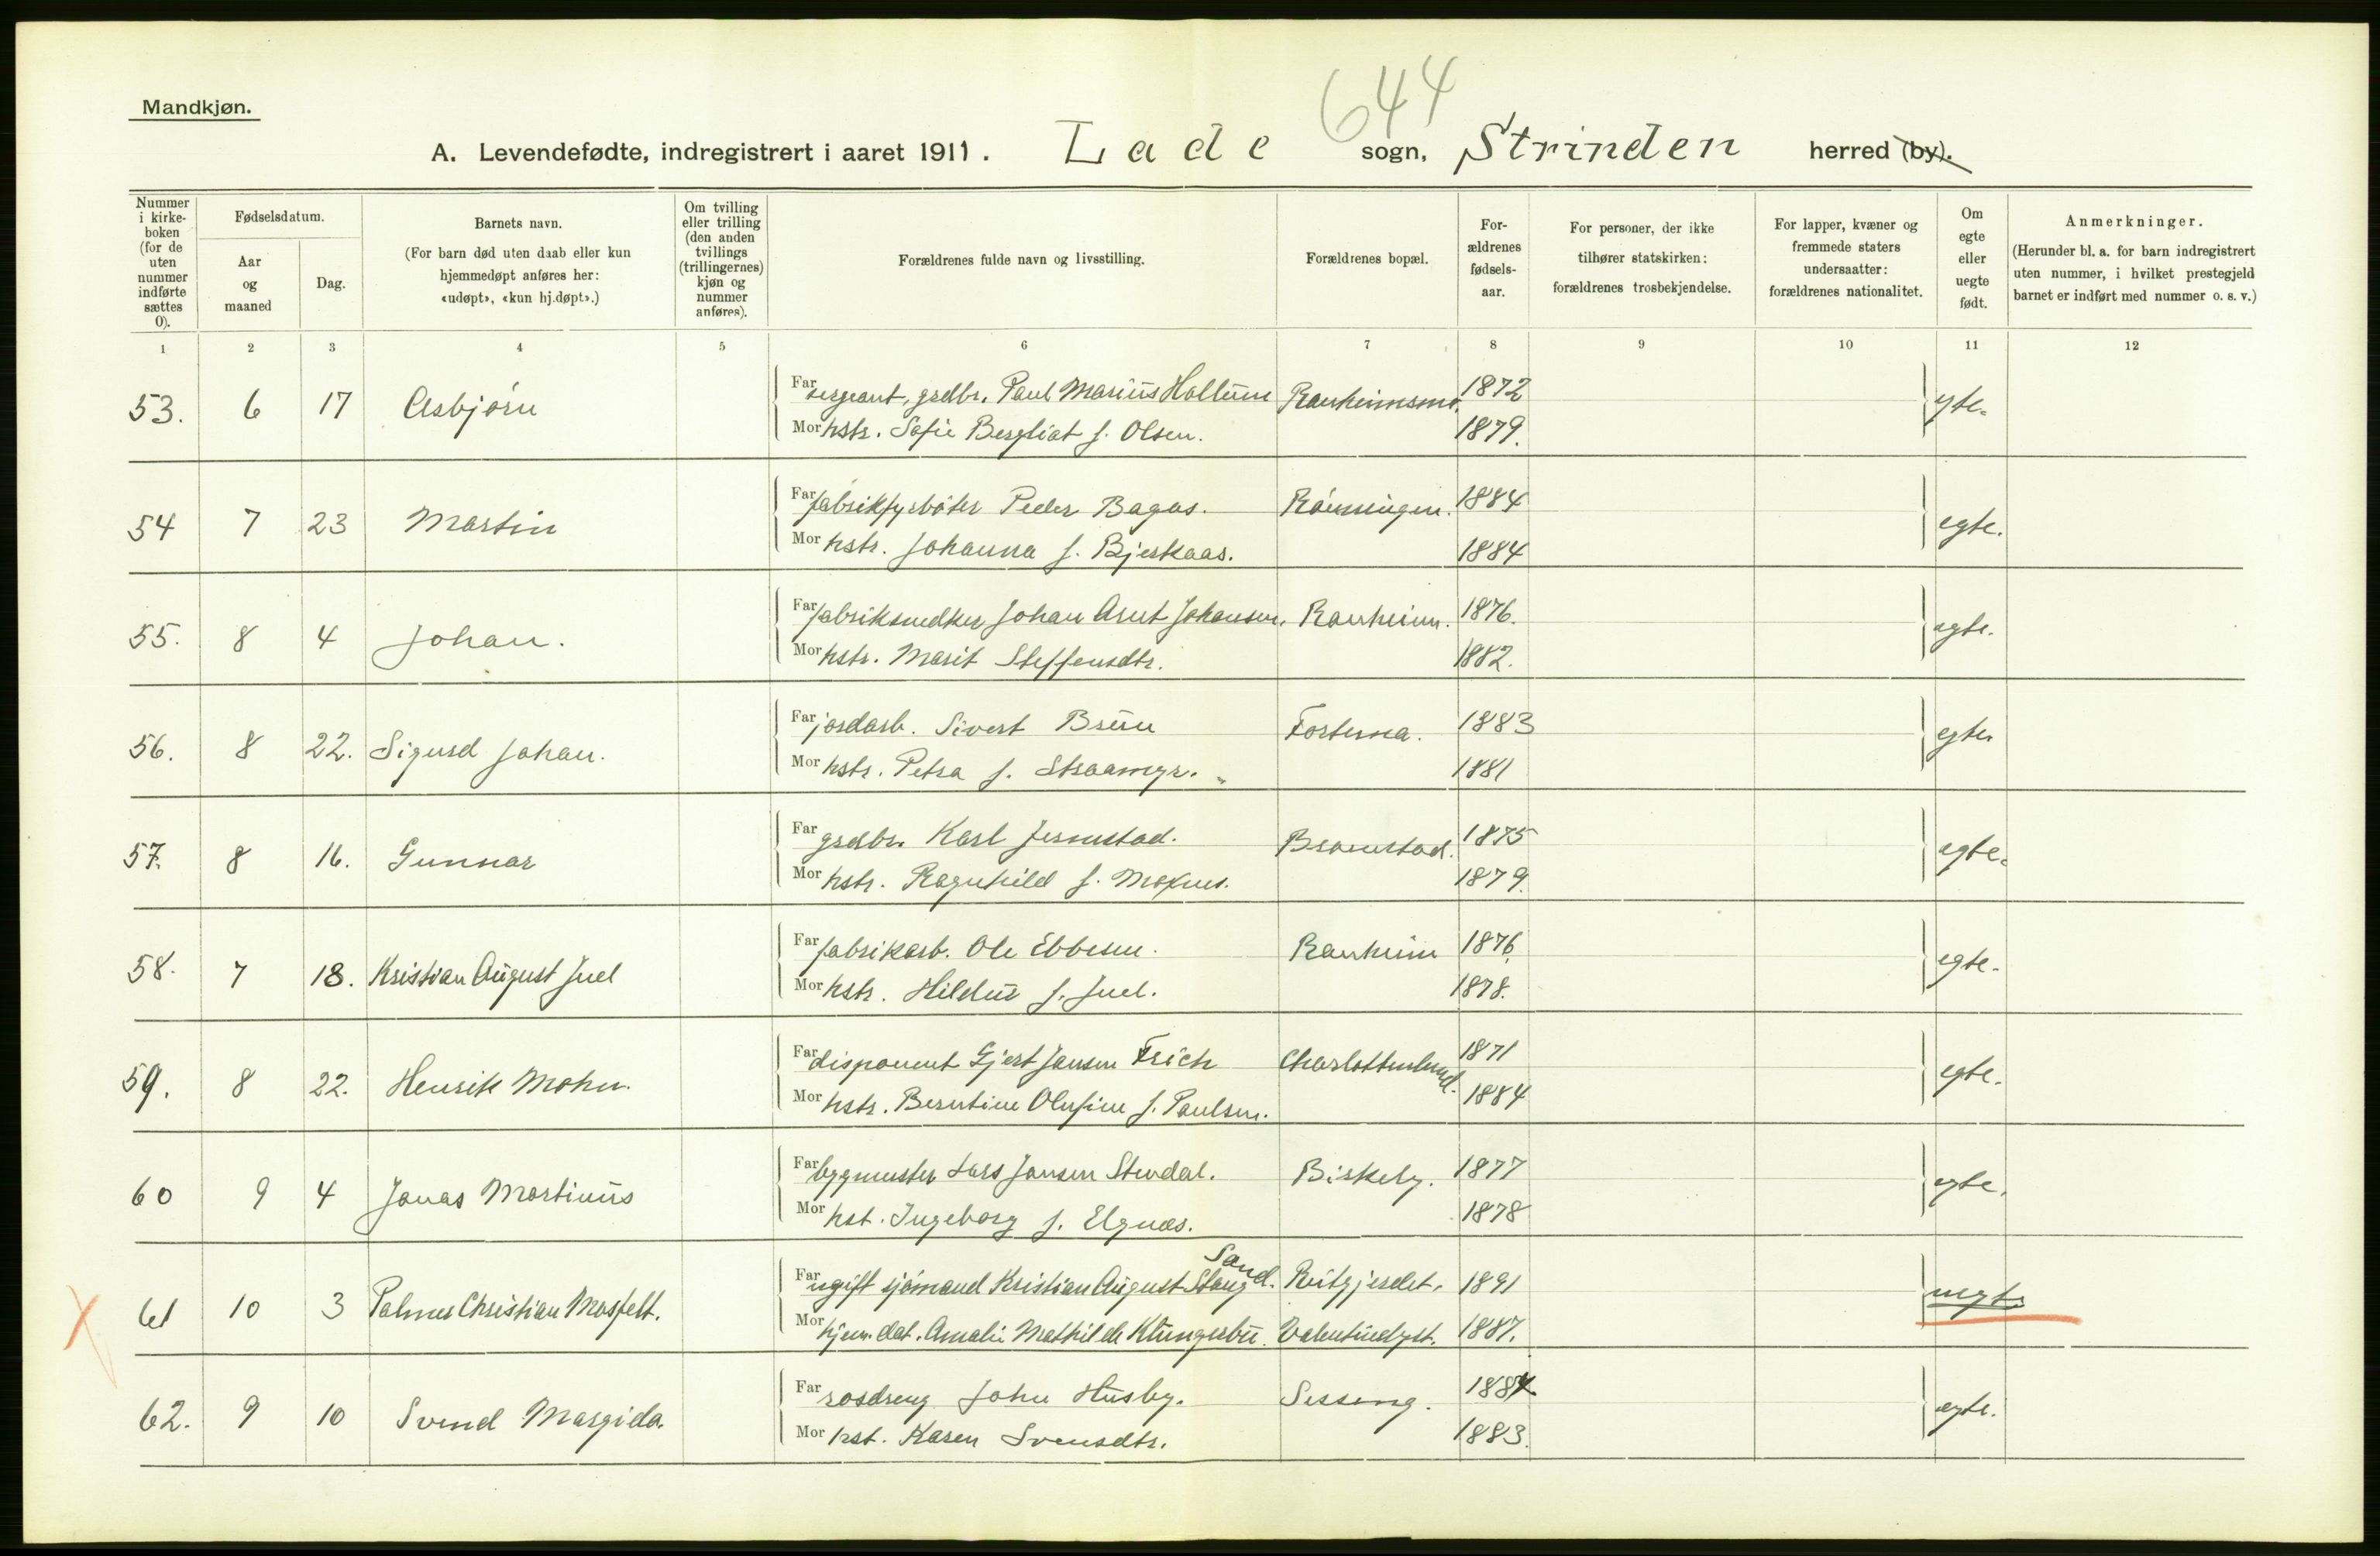 644
Mandkjøn.
A. Levendefødte, indregistrert i aaret 1911. Lade sogn, Strinden herred (by).
Nummer i kirke-boken (for de uten nummer indførte sættes 0).
Fødselsdatum.
Aar og maaned
Dag.
Barnets navn.
(For barn død uten daab eller kun hjemmedøpt anføres her: «udøpt», «kun hj.døpt».)
Om tvilling eller trilling (den anden tvillings (trillingernes) kjøn og nummer anføres).
Forældrenes fulde navn og livsstilling.
Forældrenes bopæl.
For-ældrenes fødsels-aar.
For personer, der ikke tilhører statskirken: forældrenes trosbekjendelse.
For lapper, kvæner og fremmede staters undersaatter: forældrenes nationalitet.
Om egte eller uegte født.
Anmerkninger.
(Herunder bl. a. for barn indregistrert uten nummer, i hvilket prestegjeld barnet er indført med nummer o. s. v.)
1 2 3 4 5 6 7 8 9 10 11 12
53. 6 17 Asbjørn
Far sergeant, grdbr. Paul Marius Hallum Ranheimsmo. 1872
Mor hstr. Sofie Bergliot f. Olsen. 1879.
egte.
54 7 23 Martin
Far fabrikfyrbøter Peder Bagas. Rønningen. 1884
Mor hstr. Johanna f. Bjerkaas. 1884
egte.
55. 8 4 Johan.
Far Johan Arnt Johansen. Ranheim. 1876.
Mor hstr. Marit Steffensdtr. 1882.
egte.
56. 8 22. Sigurd Johan.
Far jordarb. Sivert Bruu Forterna. 1883
Mor hstr. Petra f. 1881
egte
57. 8 16. Gunnar
Far grdbr. Karl Jermstad. Bromstad. 1875
Mor hstr. Ragnhild f. Moxnes. 1879.
egte.
58. 7 18. Kristian August Juel
Far fabrikarb. Ole Ebbesen. Ranheim 1876.
Mor hstr. Hildur f. Juel. 1878.
egte.
59. 8 22. Henrik Mohn.
Far disponent Gjert Jansen Frich Charlottenlund. 1871
Mor hstr. Berntine Olufine f. Paulsen. 1884
egte.
60 9 4 Jonas Martinus
Far bygmester Lars Jansen Stendal. Birkely. 1877
Mor hst. Ingeborg f. Elgnæs. 1878
egte.
61 10 3 Palmer Christian Mosfelt.
Sand.
Far ugift sjømand Kristian August Stang Rutgjerdet. 1891
Mor hjem. dat. Amalie Mathilde Klungerbu. Valentinlyst. 1887.
uegte
62. 9 10 Svend Margido.
Far rosdreng John Husby. Sesseng. 1884
Mor hst. Karen Svensdtr. 1883.
egte.